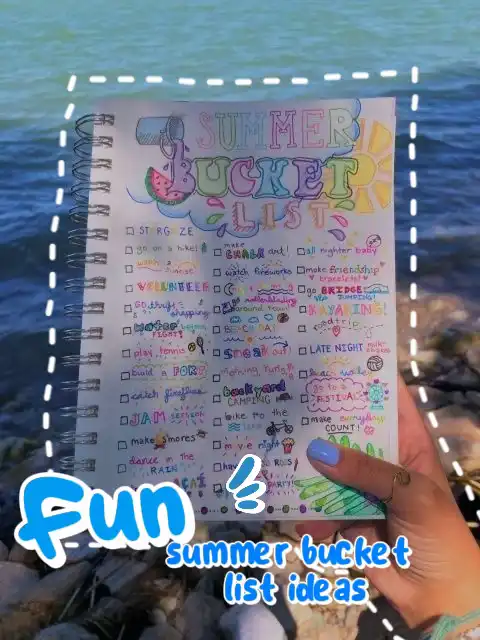 SUMMER
BUCKET
LIST
go on a hike!
VOLUNTEER
Go thrift
shopping
water balloon
FIGHT!
play tennis
build a FORT
catch fireflies
JAM SESSION
make s'mores
dance in the
RAIN
make
CHALK art!
watch fireworks
go rollerblading
around town!
BEACH DAY
sneak out!
backyard
CAMPING
bike to the
PARTY!
all nighter baby
make friendship
bracelets!
go BRIDGE
JUMPING!
KAYAKING!
LATE NIGHT
go to a
FESTIVAL
make everyday
COUNT!
Fun
summer bucket
list ideas